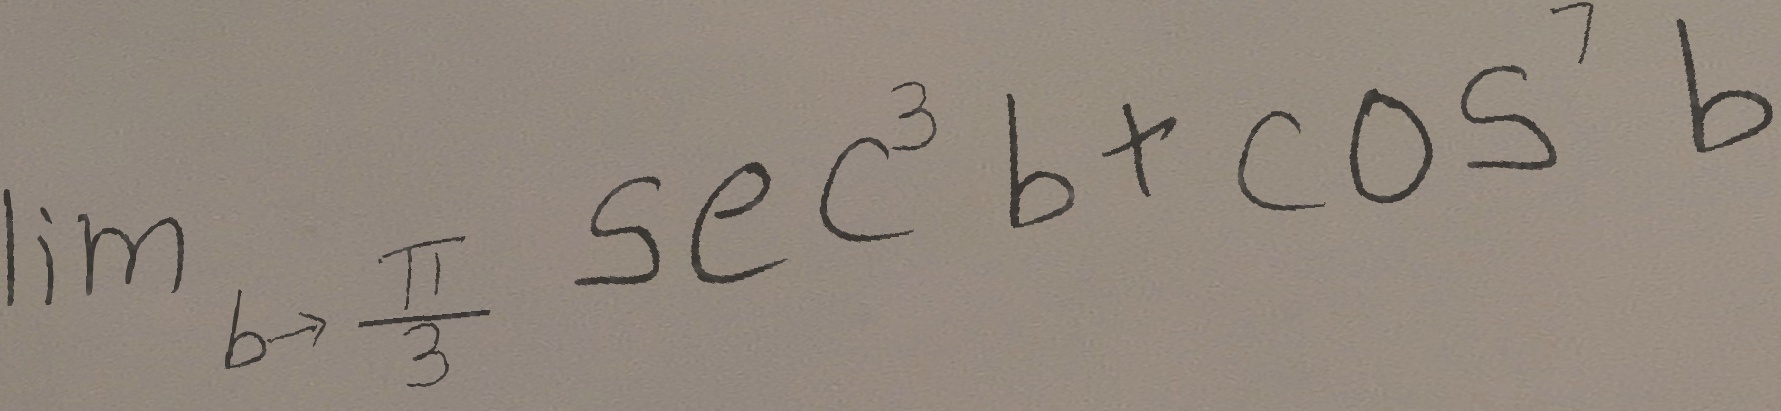 lim_{b→\frac{π}{3}} sec^3 b + cos^7 b